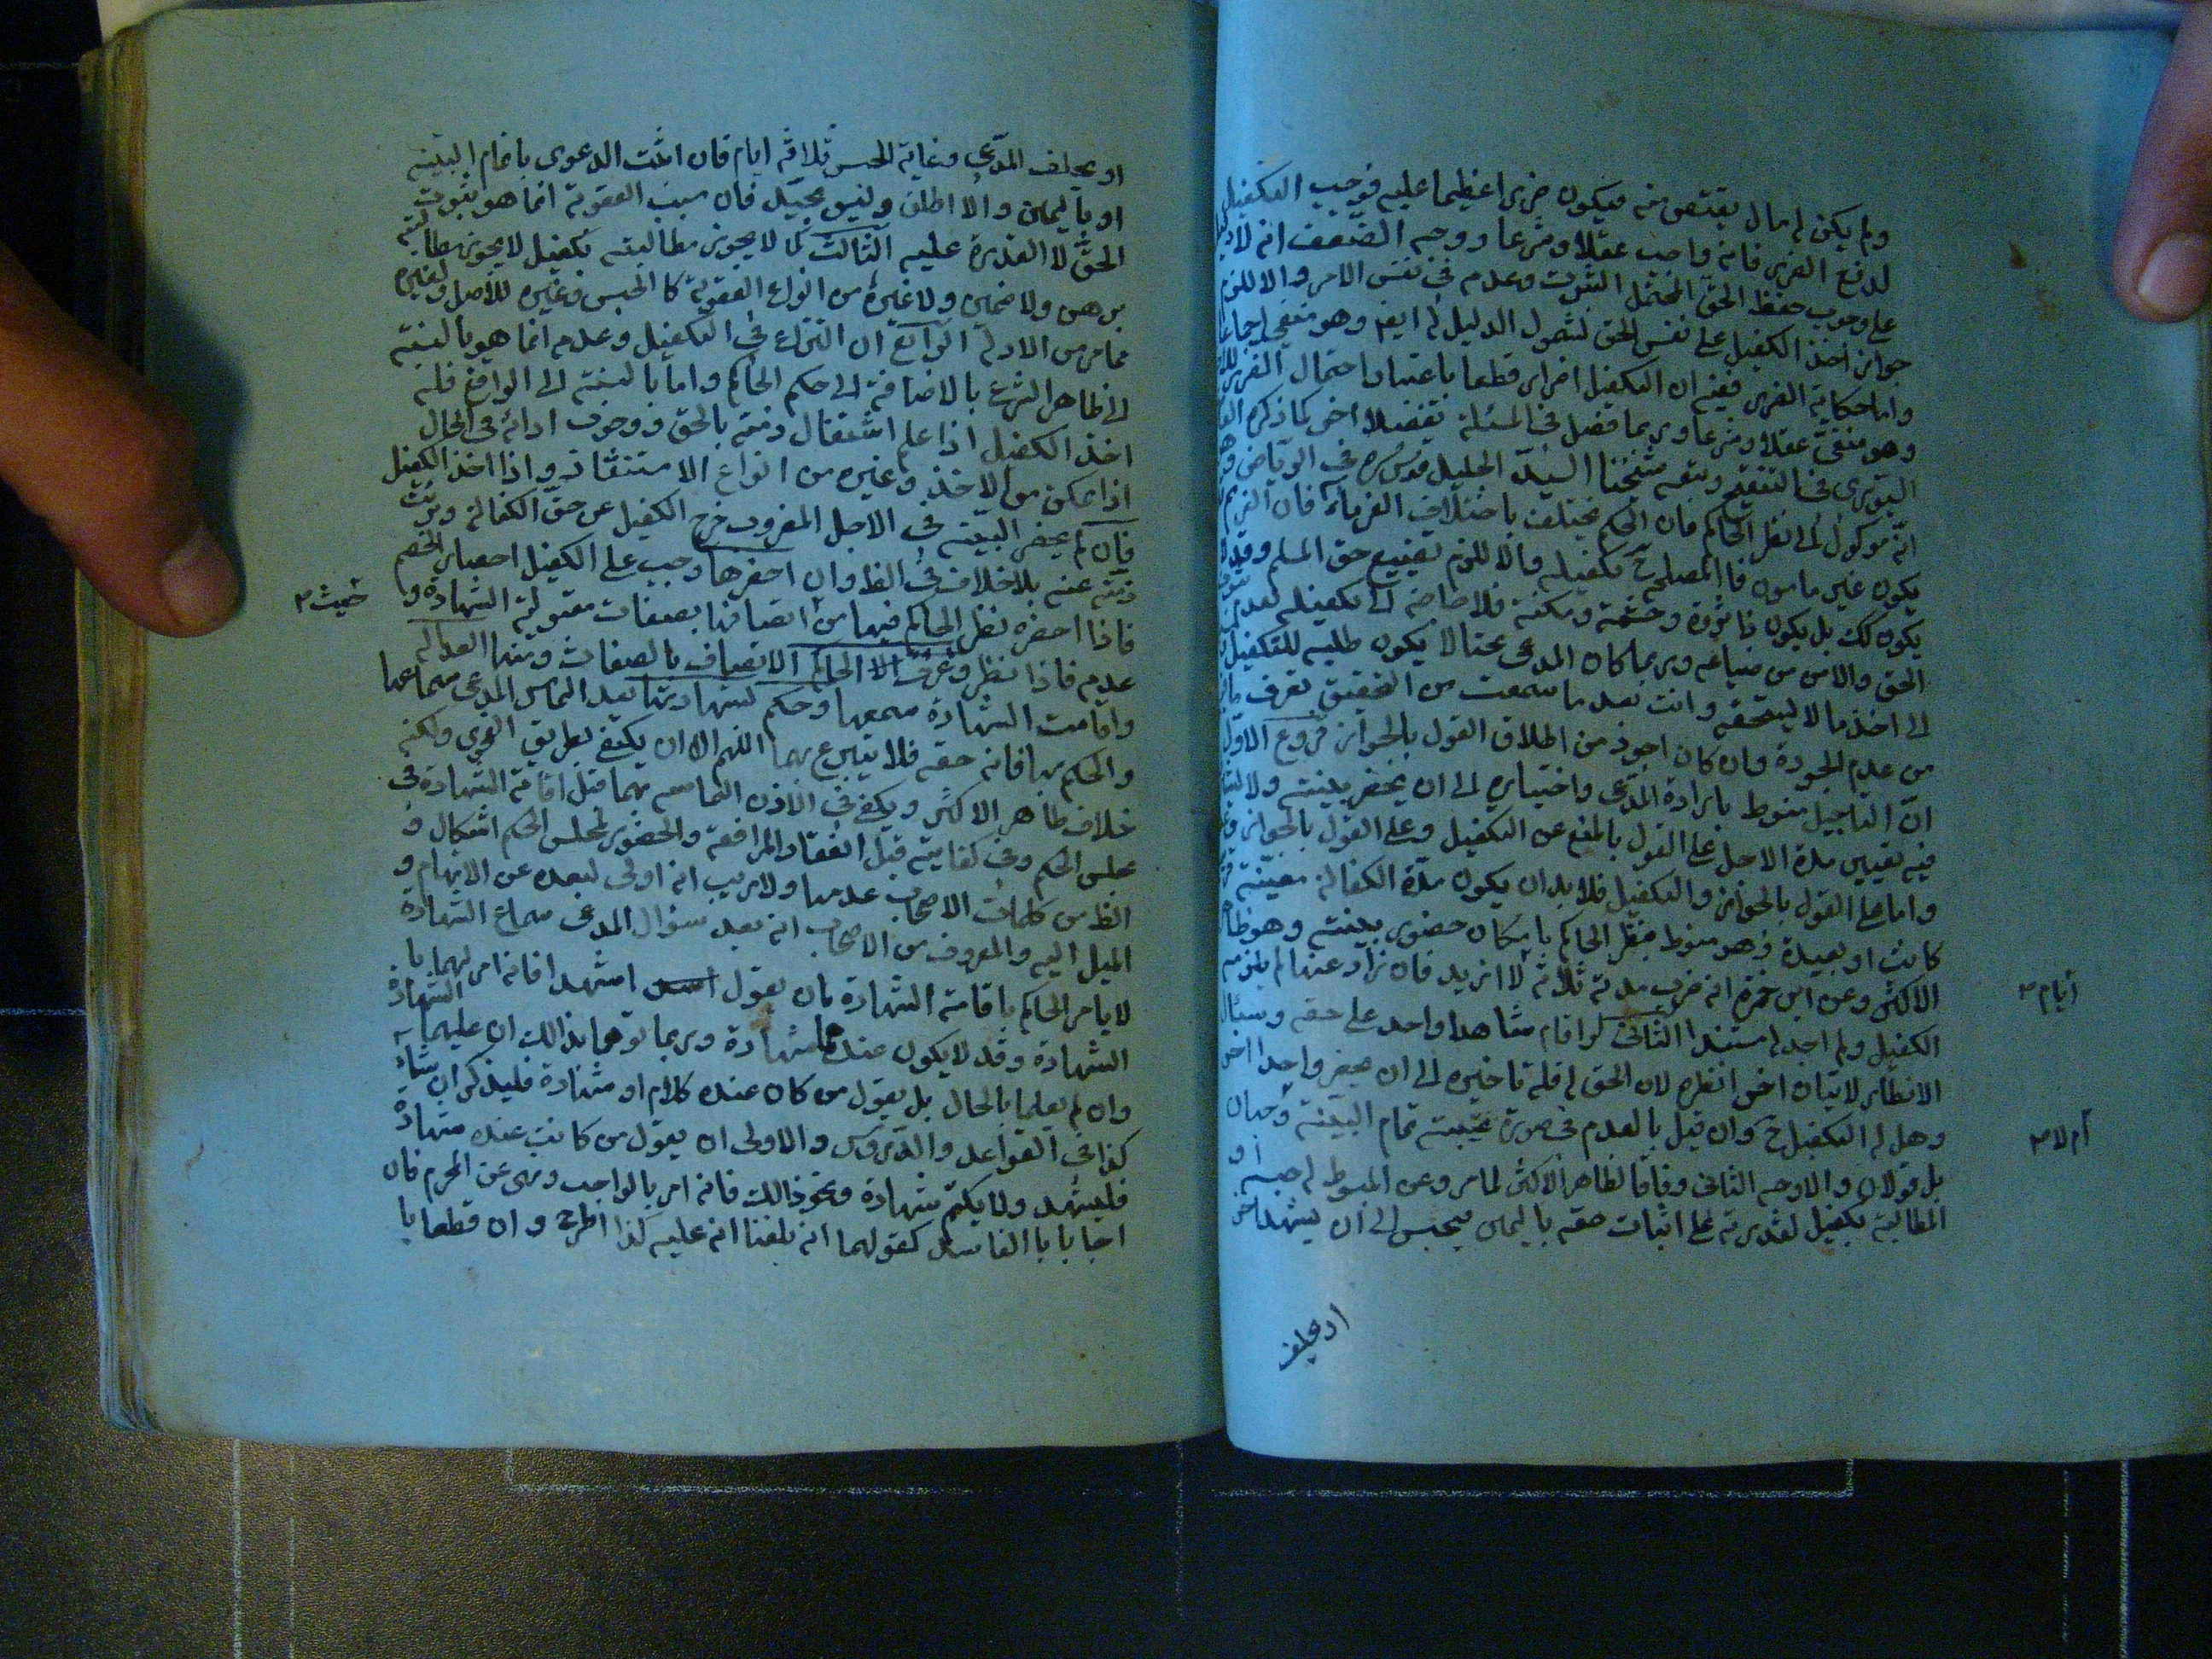 ولم يكن له مال يقتص منه فيكون ضررا عظيما عليه فوجب التكفيل
لدفع الضرر فانه واجب عقلا وشرعا ووجه الضعف انه لا دليل
على وجوب حفظ الحق المحتمل الثبوت وعدمه في نفس الامر والا للزم
جواز اخذ الكفيل على نفس الحق لشمول الدليل له ايضا وهو منفي اجماعا
واما حكاية الضرر ففيه ان التكفيل اضرار قطعا باعتبار احتمال الضرر
وهو منفي عقلا وشرعا وربما فصل في المسئلة تفصيلا اخر كما ذكره الفا
السيوري في التنقيح وتبعه شيخنا السيد الجليل قدس سره في الرياض وهو
انه موكول الى نظر الحاكم فان الحكم يختلف باختلاف الغرماء فان الغريم
يكون غير مامون فالمصلحة ح تكفيله والا للزم تضييع حق المسلم وقد لا
يكون كك بل يكون ذا ثروة وحشمة ومكنة فلا حاجة الى تكفيله لعدم
الحق والامن من ضياعه وربما كان المدعي محتالا يكون طلبه للتكفيل
الى اخذ ما لا يستحقه وانت بعد ما سمعت من التحقيق تعرف ما
من عدم الجودة وان كان اجود من اطلاق القول بالجواز فروع الاول
ان التاجيل منوط بارادة المدعي واختياره الى ان يحضر بينته ولا
فيه تعيين مدة الاجل على القول بالمنع عن التكفيل وعلى القول بالجواز
واما على القول بالجواز والتكفيل فلا بد ان يكون مدة الكفالة معينة
كانت او بعيدة وهو منوط بنظر الحاكم بامكان حضور بينته وهو ظاهر
الاكثر وعن ابن حمزة انه ضرب مدته ثلاثة لا ازيد فان زاد عنها لم يلزمه
ايام ٣
الكفيل ولم اجد له مستندا الثاني لو اقام شاهدا واحد على حقه وسئل
الانظار لاتيان اخر انظره لان الحق له فله تاخيره الى ان يحضر واحدا اخر
وهل له التكفيل ح وان قيل بالعدم في صورة غيبته تمام البينة وجهان
ام لا ٣
بل قولان والاوجه الثاني وفاقا لظاهر الاكثر لما مر وعن المبسوط له حبسه او
المطالبة بكفيل لقدرته على اثبات حقه باليمين فيحبس الى ان يشهد اخر
او يحلف
او يحلف المدعي وغاية الحبس ثلاثة ايام فان اثبت الدعوى باتمام البينة
او باليمين والا اطلق وليس بجيد فان سبب العقوبة انما هو ثبوت
الحق لا القدرة عليه الثالث كما لا يجوز مطالبته بكفيل لا يجوز مطالبته
برهن ولا ضمين ولا غيره من انواع العقوبة كالحبس وغيره للاصل ولغيره
مما مر من الادلة الرابع ان النزاع في التكفيل وعدمه انما هو بالنسبة
الى ظاهر الشرع بالاضافة الى حكم الحاكم واما بالنسبة الى الواقع فله
اخذ الكفيل اذا علم اشتغال ذمته بالحق ووجوب ادائه في الحال
اذا تمكن من الاخذ وغيره من انواع الاستنقاذ واذا اخذ الكفيل
فان لم يحضر البينة في الاجل المضروب خرج الكفيل عن حق الكفالة وبرئت
ذمته عنه بلا خلاف في الظ وان احضرها وجب على الكفيل احضار الخصم
فاذا احضره نظر الحاكم فيها من اتصافها بصفات مقبولة الشهادة و
حيث ٣
عدمه فاذا نظر وعرف الحاكم الاتصاف بالصفات ومنها العدالة
واقامت الشهادة سمعها وحكم بشهادتها بعد التماس المدعي سماعها
والحكم بها فانه حقه فلا يتبرع بهما اللهم الا ان يكتفي بطريق العرف ولكنه
خلاف ظاهر الاكثر ويكفي في الاذن التماسه بهما قبل اقامة الشهادة في
مجلس الحكم وفي كفايته قبل انعقاد المرافعة والحضور لمجلس الحكم اشكال و
الظ من كلمات الاصحاب عدمها ولا ريب انه اولى لبعده عن الاتهام و
الميل اليه والمعروف من الاصحاب انه بعد سؤال المدعي سماع الشهادة
لا يامر الحاكم باقامة الشهادة بان يقول اشهدا فانه امر لهما با
الشهادة وقد لا يكون عندهما شهادة وربما توهما بذلك ان عليهما الشهادة
وان لم يعلما بالحال بل يقول من كان عنده كلام او شهادة فليذكر ان شاء
كذا في القواعد والدروس والاولى ان يقول من كانت عنده شهادة
فليشهد ولا يكتم شهادة ونحو ذلك فانه امر بالواجب ونهى عن المحرم فان
اجابا با الفاسد كقولهما انه بلغنا انه عليه كذا اطرح وان قطعا با